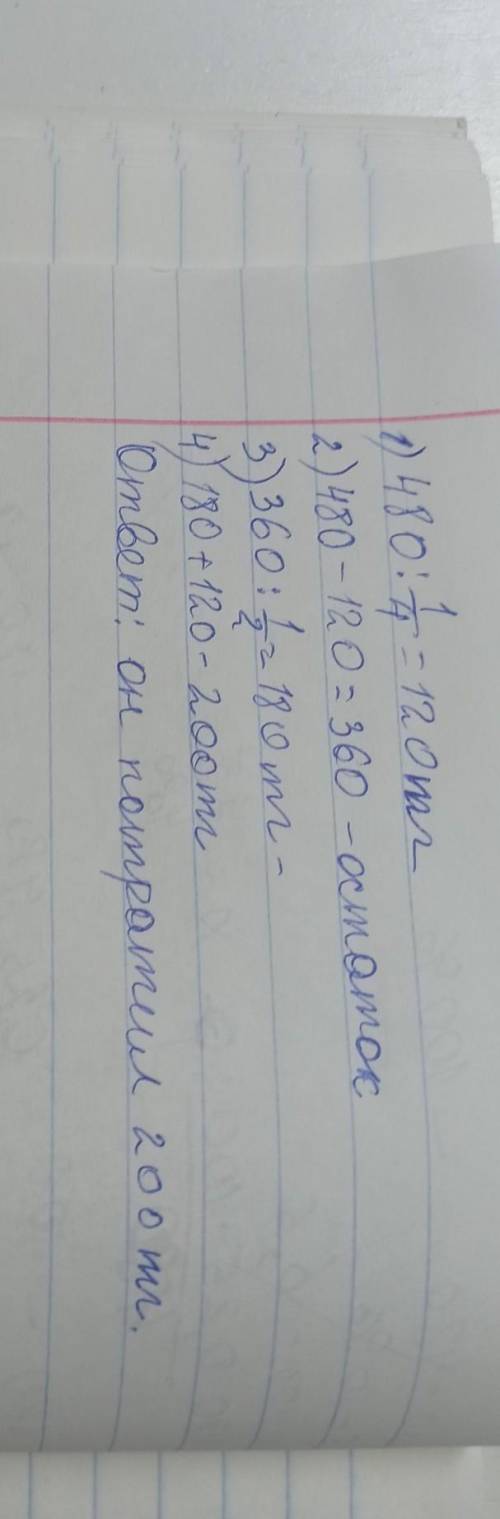 1) 480 : 1/4 = 120 тг
2) 480 - 120 = 360 - остаток
3) 360 : 1/2 = 180 тг -
4) 180 + 120 - 200тг
Ответ: он потратил 200 тг.